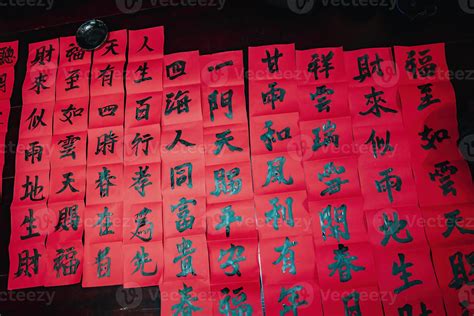 福至如雲
財求似雨地生
祥雲瑞開春
甘雨和風利有年
一門天賜平安福
四海人同富貴春
人生百行孝為先
天有四時春
福至如雲天賜福
財求似雨地生財
Vecteezy